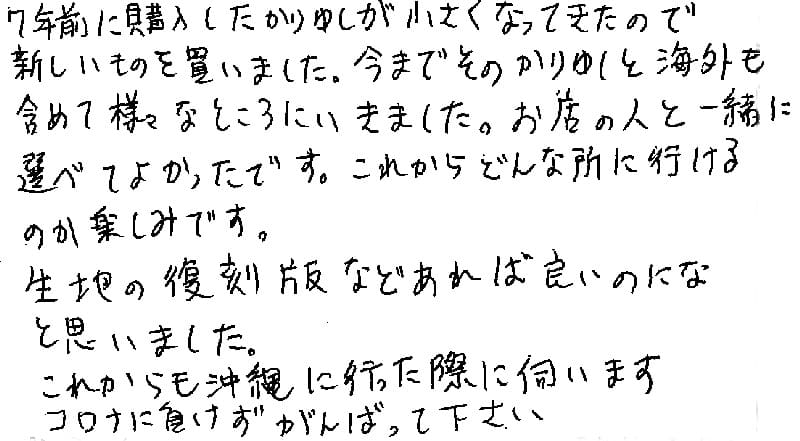 7年前に購入したかりゆしが小さくなってきたので
新しいものを買いました。今までそのかりゆしと海外も
含めて様々なところにいきました。お店の人と一緒に
選べてよかったです。これからどんな所に行ける
のか楽しみです。
生地の復刻版などあれば良いのにな
と思いました。
これからも沖縄に行った際に伺います
コロナに負けずがんばって下さい